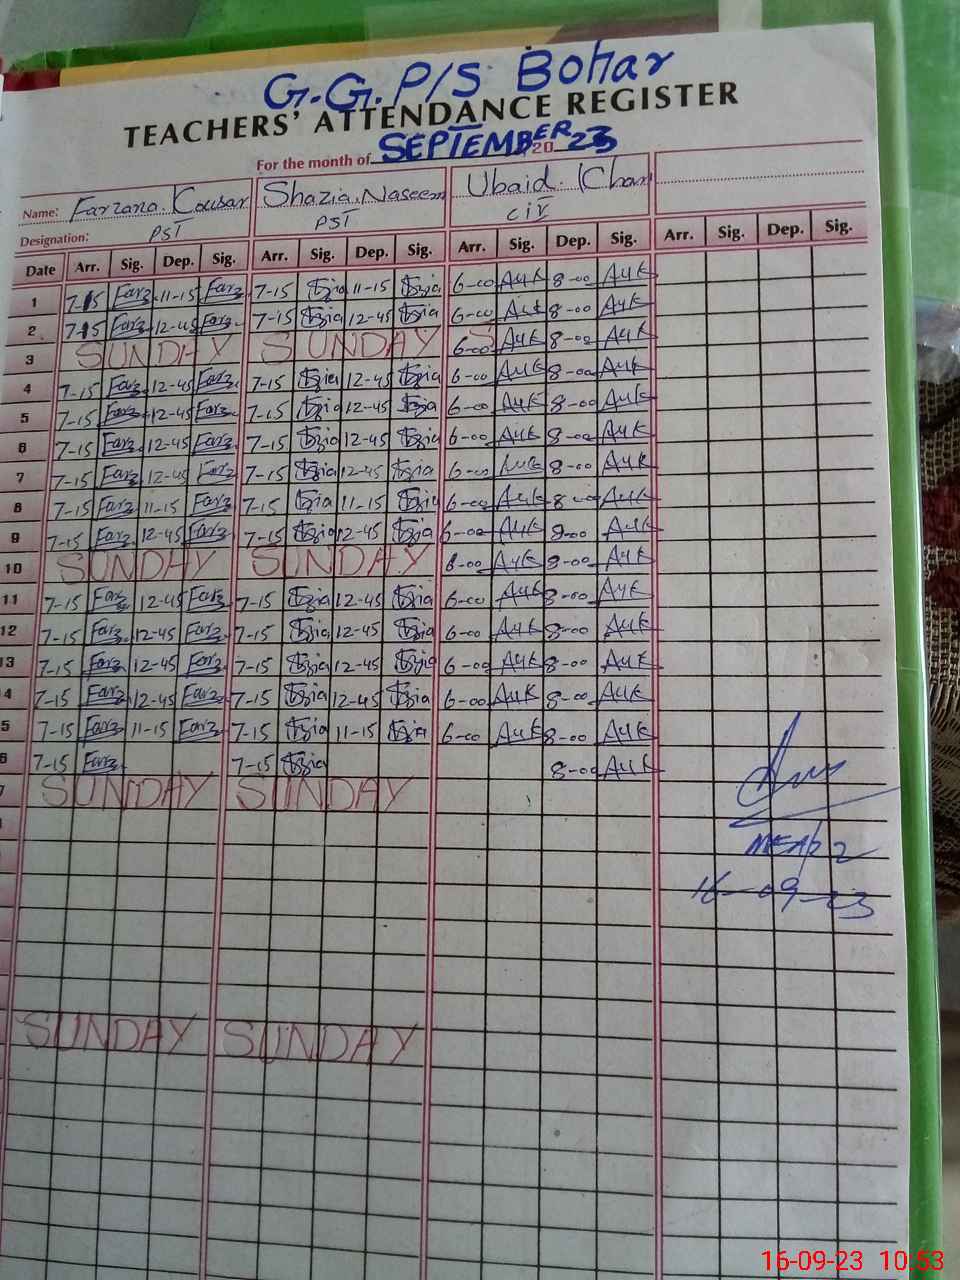 G.G.P/S Bohar
TEACHERS' ATTENDANCE REGISTER
For the month of SEPTEMBER 2023
Name: Farzana Kousar Shazia Naseem Ubaid Khan
Designation: PST PST CIV
Date Arr. Sig. Dep. Sig. Arr. Sig. Dep. Sig. Arr. Sig. Dep. Sig. Arr. Sig. Dep. Sig.
1 7-15 Farz 11-15 Farz 7-15 Szia 11-15 Szia 6-00 AUK 8-00 AUK
2 7-15 Farz 12-45 Farz 7-15 Szia 12-45 Szia 6-00 AUK 8-00 AUK
3 SUNDAY SUNDAY 6-00 AUK 8-00 AUK
4 7-15 Farz 12-45 Farz 7-15 Szia 12-45 Szia 6-00 AUK 8-00 AUK
5 7-15 Farz 12-45 Farz 7-15 Szia 12-45 Szia 6-00 AUK 8-00 AUK
6 7-15 Farz 12-45 Farz 7-15 Szia 12-45 Szia 6-00 AUK 8-00 AUK
7 7-15 Farz 12-45 Farz 7-15 Szia 12-45 Szia 6-00 AUK 8-00 AUK
8 7-15 Farz 11-15 Farz 7-15 Szia 11-15 Szia 6-00 AUK 8-00 AUK
9 7-15 Farz 12-45 Farz 7-15 Szia 12-45 Szia 6-00 AUK 8-00 AUK
10 SUNDAY SUNDAY 6-00 AUK 8-00 AUK
11 7-15 Farz 12-45 Farz 7-15 Szia 12-45 Szia 6-00 AUK 8-00 AUK
12 7-15 Farz 12-45 Farz 7-15 Szia 12-45 Szia 6-00 AUK 8-00 AUK
13 7-15 Farz 12-45 Farz 7-15 Szia 12-45 Szia 6-00 AUK 8-00 AUK
4 7-15 Farz 12-45 Farz 7-15 Szia 12-45 Szia 6-00 AUK 8-00 AUK
5 7-15 Farz 11-15 Farz 7-15 Szia 11-15 Szia 6-00 AUK 8-00 AUK
6 7-15 Farz 7-15 Szia 8-00 AUK
7 SUNDAY SUNDAY
16-09-23
SUNDAY SUNDAY
16-09-23 10:53